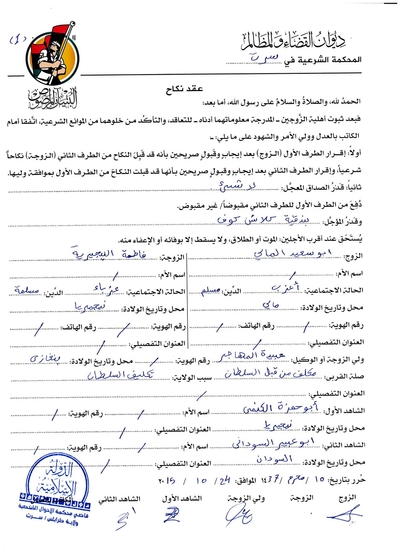 ديوان القضاء والمظالم
المحكمة الشرعية في سرت
البنيان المرصوص
عقد نكاح
الحمدُ لله، والصلاةُ والسلامُ على رسول الله، أما بعد:
فبعد ثبوت أهلية الزَّوجين – المدرجة معلوماتهما أدناه – للتعاقد، والتأكُّد من خلوهما من الموانع الشرعية، اتَّفقا أمام
الكاتب بالعدل وولي الأمر والشهود على ما يلي:
أولاً: إقرار الطرف الأول (الزوج) بعد إيجاب وقبول صريحين بأنه قد قَبِلَ النكاح من الطرف الثاني (الزوجة) نكاحاً
شرعياً، وإقرار الطرف الثاني بعد إيجاب وقبول صريحين بأنها قد قبلت النكاح من الطرف الأول بموافقة وليها.
ثانياً: قدرُ الصداق المعجَّل: لا شيء
دُفِعَ من الطرف الأول للطرف الثاني مقبوضاً/ غير مقبوض.
وقدرُ المؤجَّل: بندقية كلاش كوف
يُستَحق عند أقرب الأجلين، الموت أو الطلاق، ولا يسقط إلا بوفائه أو الإعفاء منه.
الزوج: ابو سعيد المالي الزوجة: فاطمة النيجيرية
اسم الأم: / اسم الأم: /
الحالة الاجتماعية: أعزب الدِّين: مسلم الحالة الاجتماعية: عزباء الدِّين: مسلمة
محل وتاريخ الولادة: مالي محل وتاريخ الولادة: نيجيريا
رقم الهوية: / رقم الهاتف: / رقم الهوية: / رقم الهاتف: /
العنوان التفصيلي: / العنوان التفصيلي: /
ولي الزوجة أو الوكيل: عبيدة المهاجر رقم الهوية: / محل وتاريخ الولادة: بنغازي
صلة القربى: مكلف من قبل السلطان سبب الولاية: تكليف السلطان
العنوان التفصيلي: /
الشاهد الأول: أبو حمزة اسم الأم: / رقم الهوية: /
محل وتاريخ الولادة: نيجيريا العنوان التفصيلي: /
الشاهد الثاني: ابو عبير السوداني اسم الأم: / رقم الهوية: /
محل وتاريخ الولادة: السودان العنوان التفصيلي: /
حُرِّر بتاريخ: 15 / محرم / 1437 الموافق: 24 / 10 / 2015
الزوج الزوجة ولي الزوجة الشاهد الأول الشاهد الثاني
الدولة
الإسلامية
قاضي محكمة الاحوال الشخصية
ولاية طرابلس / سرت